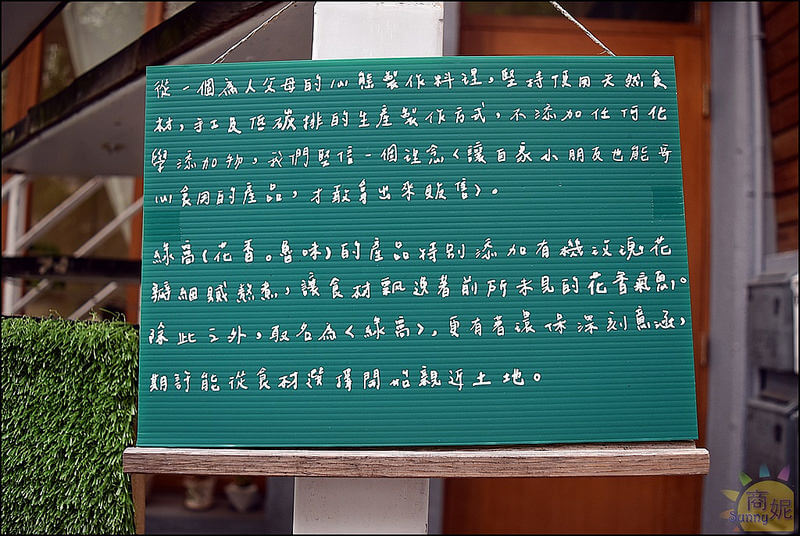 從一個為人父母的心態製作料理，堅持使用天然食
材，手工及低碳排的生產製作方式，不添加任何化
學添加物，我們堅信一個理念〈讓自家小朋友也能安
心食用的產品，才敢拿出來販售〉。
綠窩(花香。魯味)的產品特別添加有機玫瑰花
瓣細膩熬煮，讓食材飄逸著前所未見的花香氣息。
除此之外，取名為〈綠窩〉，更有著環保深刻意涵，
期許能從食材選擇開始親近土地。
商妮
Sunny